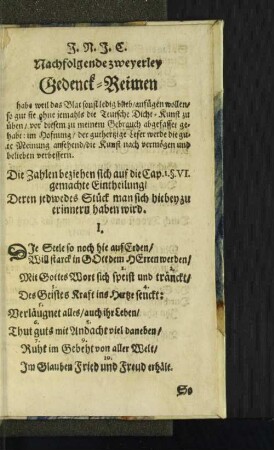 J. N. J. C.
Nachfolgende zweyerley
Gedenck-Reimen
habe weil das Blat sonst ledig blieb/anfügen wollen/
so gut sie ohne jemahls die Teutsche Dicht-Kunst zu
üben/ vor diesem zu meinem Gebrauch abgefasset ge-
habt: im Hofnung/ der guthertzige Leser werde die gu-
te Meinung ansehend/ die Kunst nach vermögen und
belieben verbessern.
Die Zahlen beziehen sich auf die Cap. 1. §. VI.
gemachte Eintheilung/
Deren jedwedes Stück man sich hiebey zu
erinnern haben wird.
I.
DIe Seele so noch hie auf Erden/
Will starck in GOtt dem HErren werden/
1. 2.
Mit Gottes Wort sich speist und tränckt/
3. 4.
Des Geistes Kraft ins Hertze senckt:
5.
Verläugnet alles/ auch ihr Leben/
6. 7.
Thut guts mit Andacht viel daneben/
7. 9.
Ruht im Gebeht von aller Welt/
10.
Im Glauben Fried und Freud erhält.
So